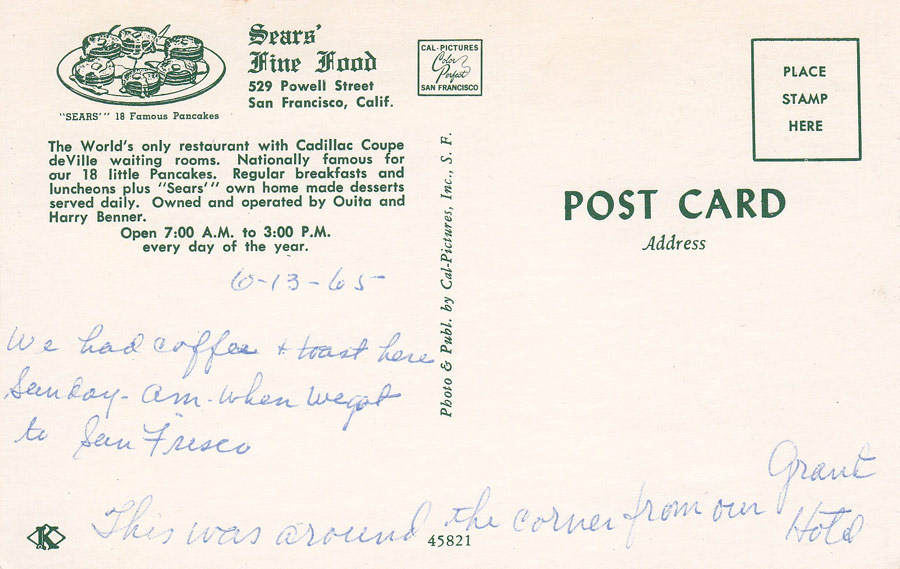 Sears'
Fine Food
529 Powell Street
San Francisco, Calif.
"SEARS'" 18 Famous Pancakes
The World's only restaurant with Cadillac Coupe
deVille waiting rooms. Nationally famous for
our 18 little Pancakes. Regular breakfasts and
luncheons plus "Sears'" own home made desserts
served daily. Owned and operated by Ouita and
Harry Benner.
Open 7:00 A.M. to 3:00 P.M.
every day of the year.
6-13-65
We had coffee + toast here
Sunday - am - when we got
to San Frisco
This was around the corner from our Grant
Hotel
CAL-PICTURES
Color
Perfect
SAN FRANCISCO
Photo & Publ. by Cal-Pictures, Inc., S. F.
PLACE
STAMP
HERE
POST CARD
Address
K
45821